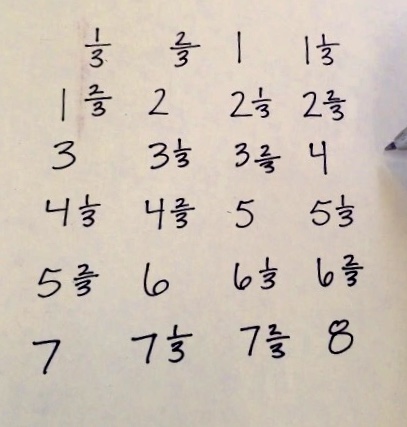 1/3 2/3 1 1 1/3
1 2/3 2 2 1/3 2 2/3
3 3 1/3 3 2/3 4
4 1/3 4 2/3 5 5 1/3
5 2/3 6 6 1/3 6 2/3
7 7 1/3 7 2/3 8